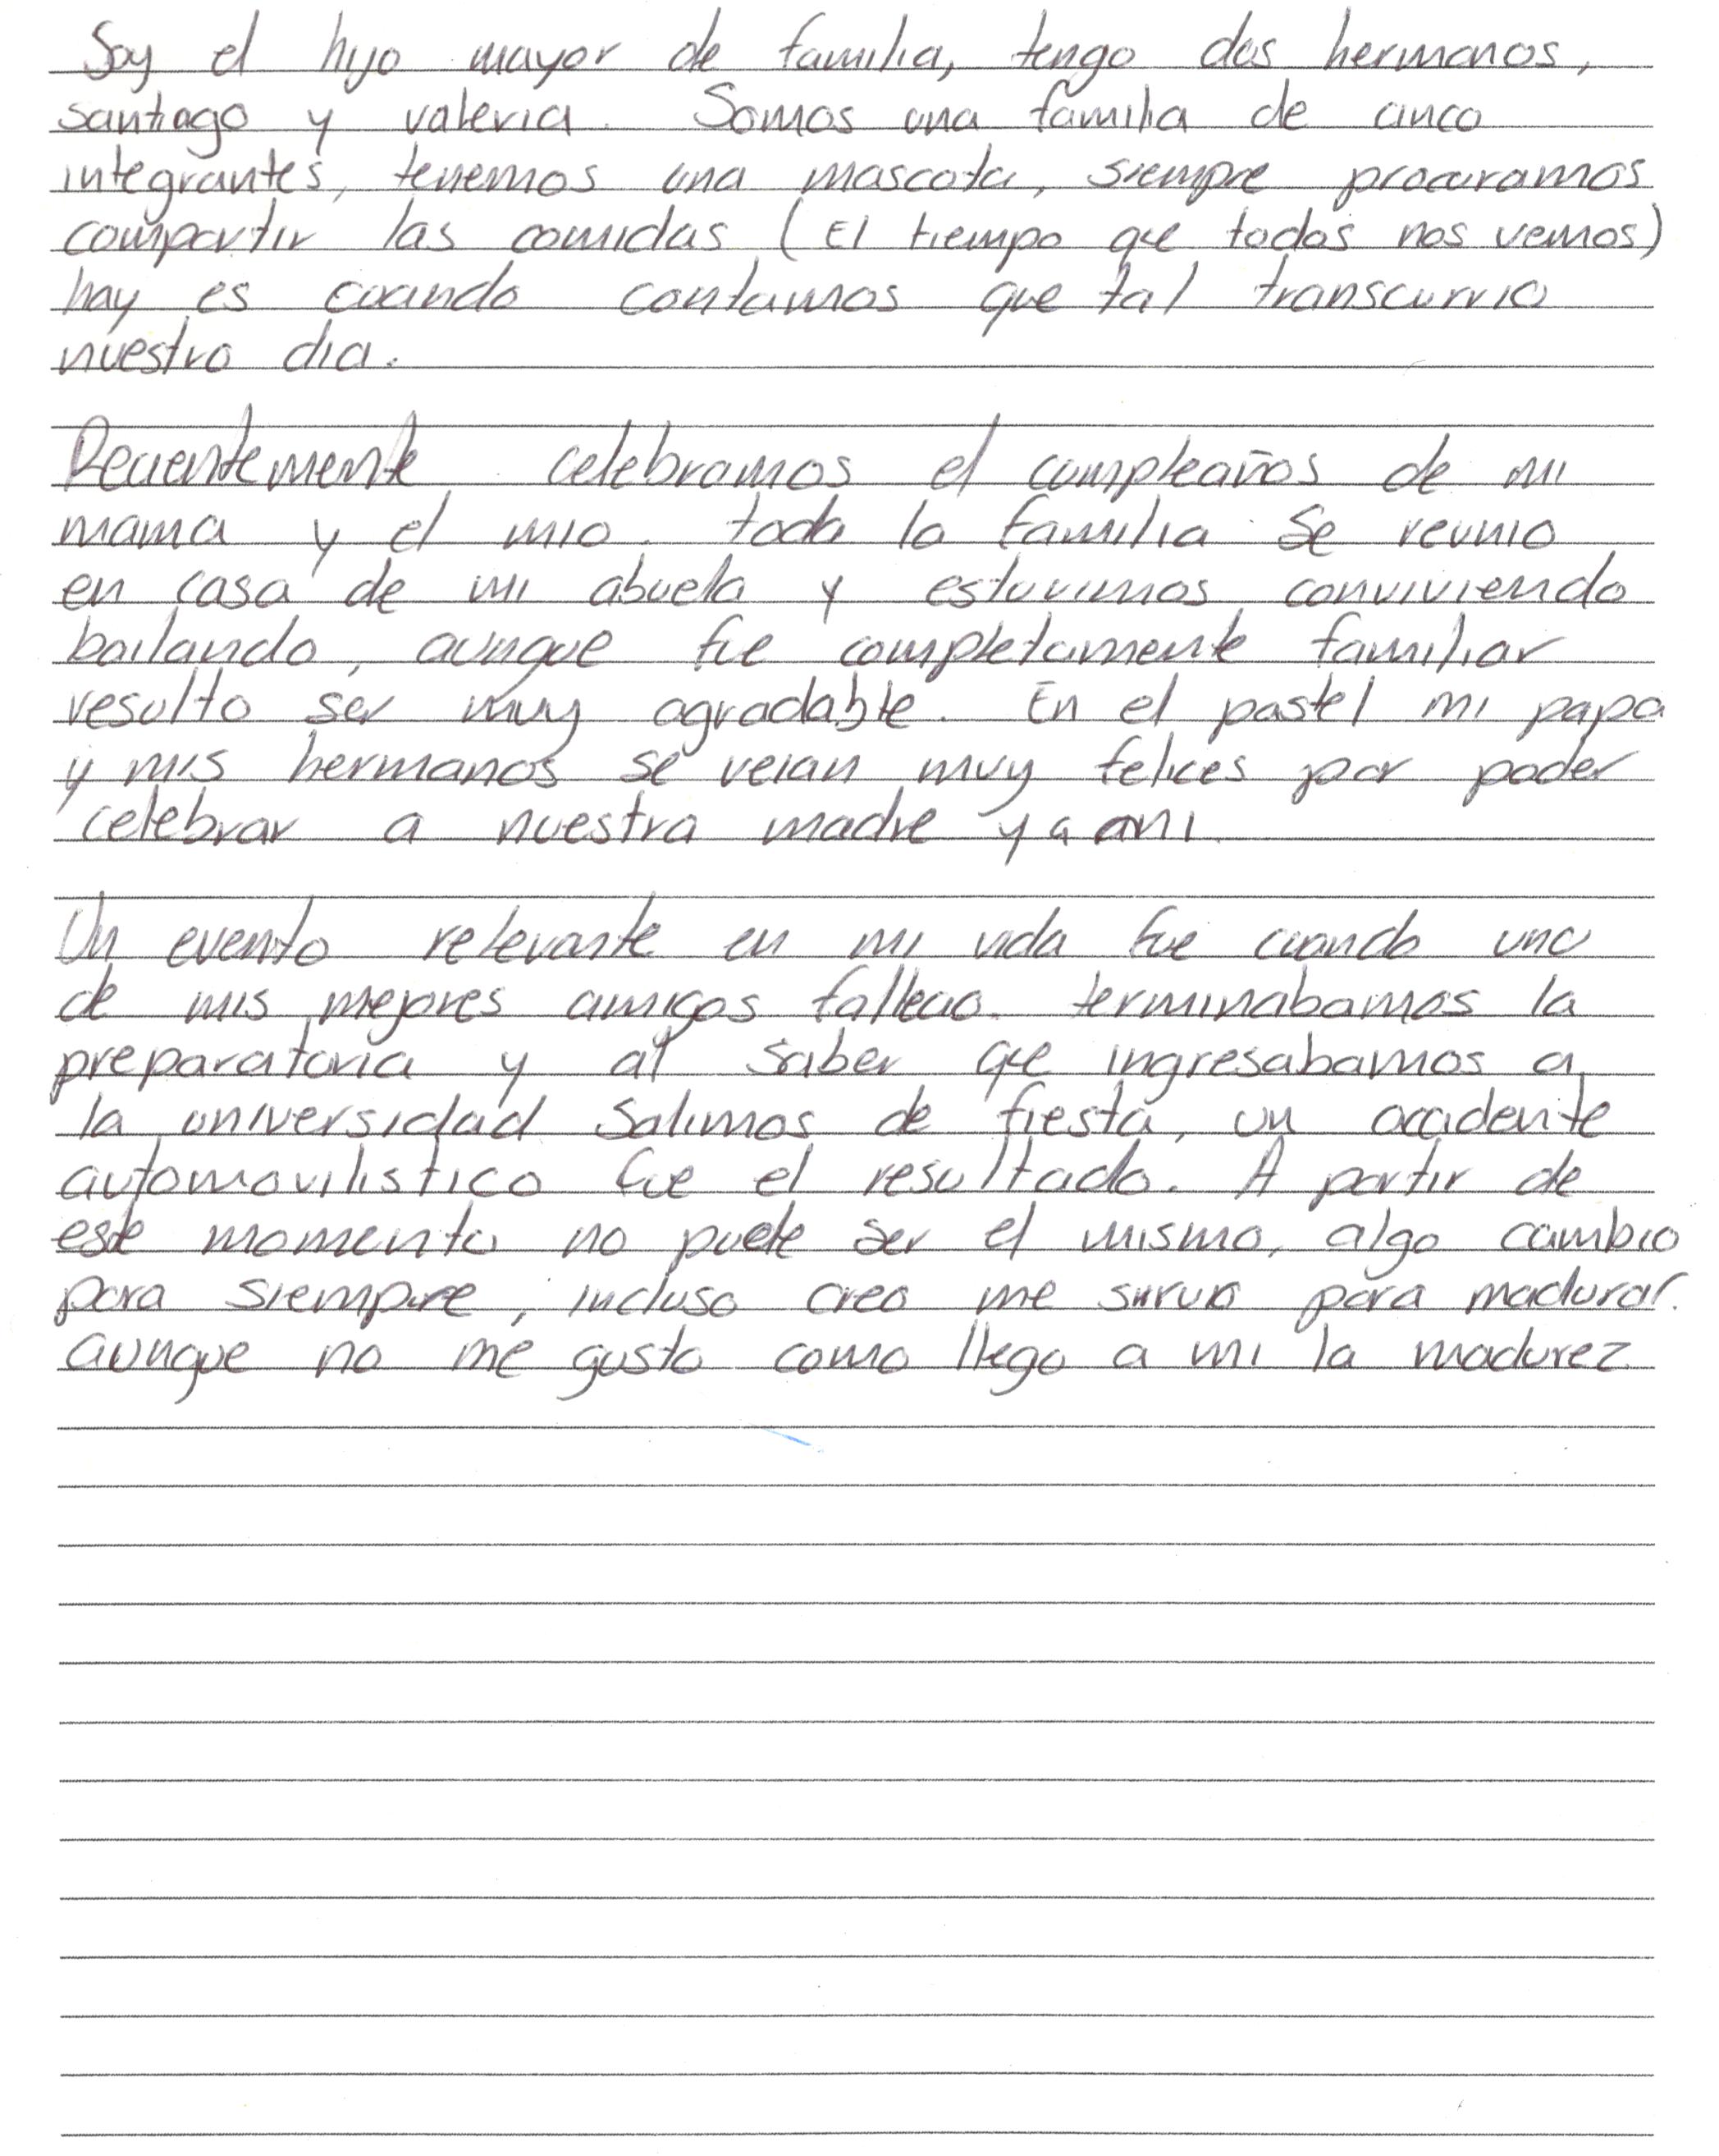 Soy el hijo mayor de familia, tengo dos hermanos,
santiago y valeria. Somos una familia de cinco
integrantes, tenemos una mascota, siempre procuramos
compartir las comidas (El tiempo que todos nos vemos)
hay es cuando contamos que tal transcurrio
nuestro dia.
Recientemente celebramos el cumpleaños de mi
mama y el mio. toda la familia se reunio
en casa de mi abuela y estuvimos conviviendo
bailando, aunque fue completamente familiar
resulto ser muy agradable. En el pastel mi papa
y mis hermanos se veian muy felices por poder
celebrar a nuestra madre y a mi.
Un evento relevante en mi vida fue cuando uno
de mis mejores amigos fallecio. terminabamos la
preparatoria y al saber que ingresabamos a
la universidad salimos de fiesta, un accidente
automovilistico fue el resultado. A partir de
este momento no puede ser el mismo, algo cambio
para siempre, incluso creo me sirvio para madurar.
aunque no me gusto como llego a mi la madurez